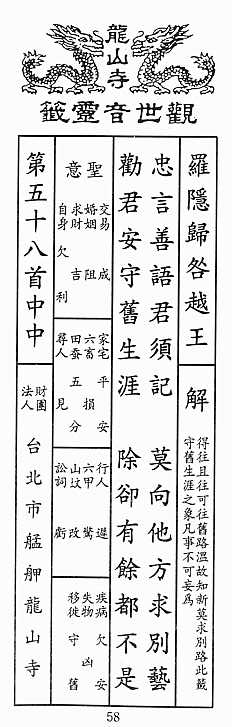 龍山寺
觀世音靈籤
羅隱歸咎越王
解
得往且往可往舊路溫故知新莫求別路此籤
守舊生涯之象凡事不可妄為
忠言善語君須記 莫向他方求別藝
勸君安守舊生涯 除卻有餘都不是
聖意
交易 成
婚姻 阻
求財 吉
自身 欠利
家宅 平安
六畜 損
田蚕 五分
尋人 見
行人 遲
六甲 驚
山墳 改
訟詞 虧
疾病 欠安
失物 凶
移徙 守舊
第五十八首中中
財團法人
台北市艋舺龍山寺
58